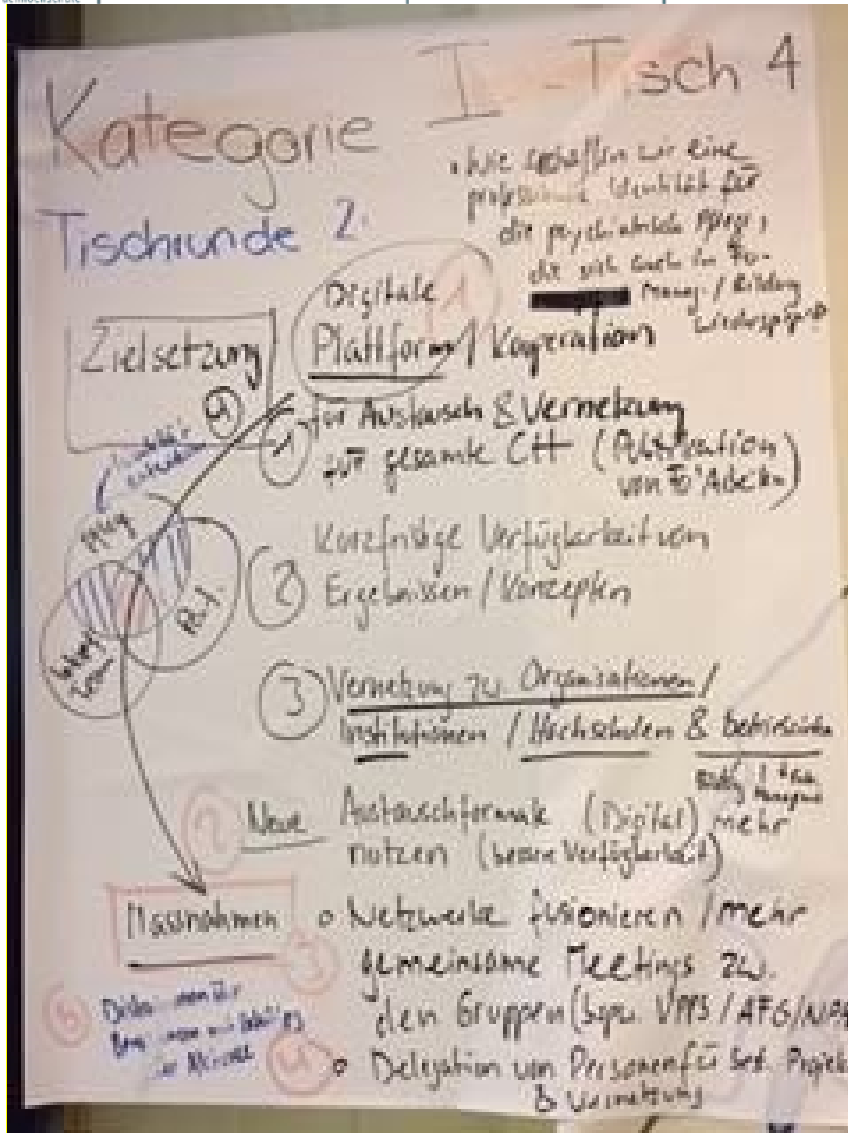 Kategorie I - Tisch 4
Tischrunde 2.
• Wie schaffen wir eine
professionelle Identität für
die psychiatrische Pflege,
die sich auch in Fo-
Manag. / Bildung
Zielsetzung
Digitale
Plattform / Kooperation
1
4
1 für Austausch & Vernetzung
für gesamte CH (Publikation
von Fo'Arbeiten)
Pfleg
2 Kurzfristige Verfügbarkeit von
Ergebnissen / Konzepten
Team
3 Vernetzung zw. Organisationen /
Institutionen / Hochschulen &
2 Neue Austauschformate (Digital) mehr
nutzen (bessere Verfügbarkeit)
Massnahmen
3 o Netzwerke fusionieren / mehr
gemeinsame Meetings zw.
den Gruppen (bspw. VPPS / AFG /
4 o Delegation von Personen für Projek
& Vernetzung